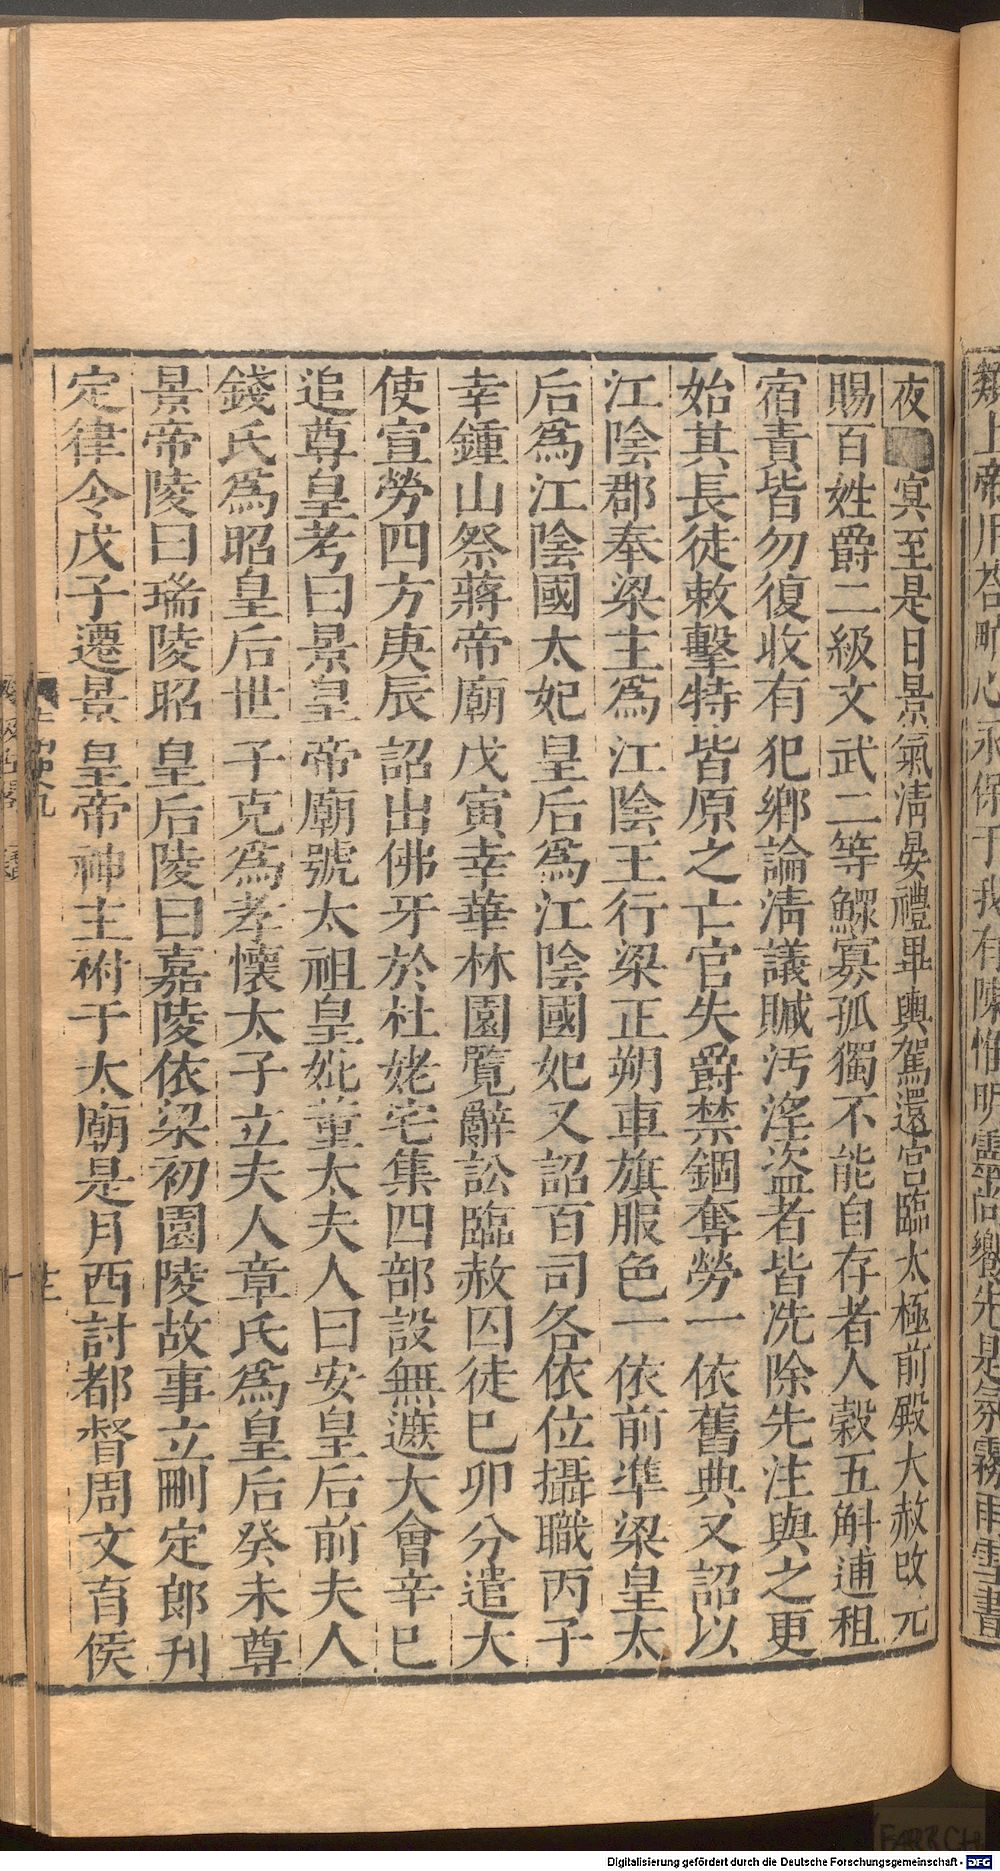 夜冥至是日景氣清晏禮畢輿駕還宮臨太極前殿大赦改元
賜百姓爵二級文武二等鰥寡孤獨不能自存者人穀五斛逋租
宿責皆勿復收有犯鄉論清議贓汚淫盜者皆洗除先注與之更
始其長徒敕擊特皆原之亡官失爵禁錮奪勞一依舊典又詔以
江陰郡奉梁主爲江陰王行梁正朔車旗服色一依前準梁皇太
后爲江陰國太妃皇后爲江陰國妃又詔百司各依位攝職丙子
幸鍾山祭蔣帝廟戊寅幸華林園覽辭訟臨赦囚徒巳卯分遣大
使宣勞四方庚辰詔出佛牙於杜姥宅集四部設無遮大會辛巳
追尊皇考曰景皇帝廟號太祖皇妣董太夫人曰安皇后前夫人
錢氏爲昭皇后世子克爲孝懷太子立夫人章氏爲皇后癸未尊
景帝陵曰瑞陵昭皇后陵曰嘉陵依梁初園陵故事立刪定郎刋
定律令戊子遷景皇帝神主祔于太廟是月西討都督周文育侯
Digitalisierung gefördert durch die Deutsche Forschungsgemeinschaft - DFG